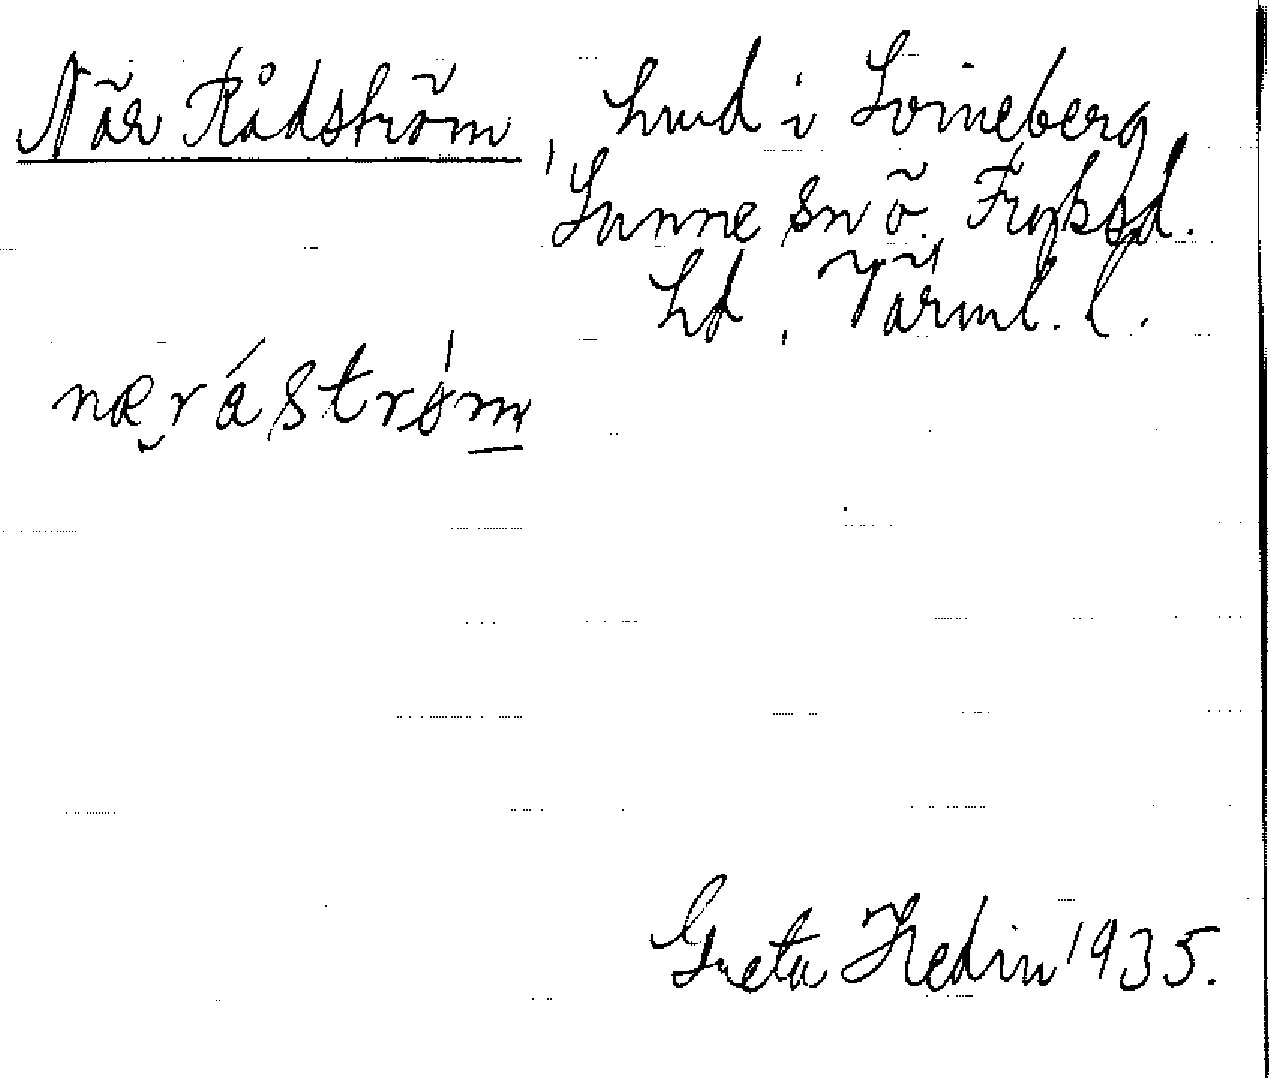 När Rådström, hmd i Svineberg,
Sunne sn ö. Fryksd.
hd, Värml. l.
næráström
Greta Hedin 1935.